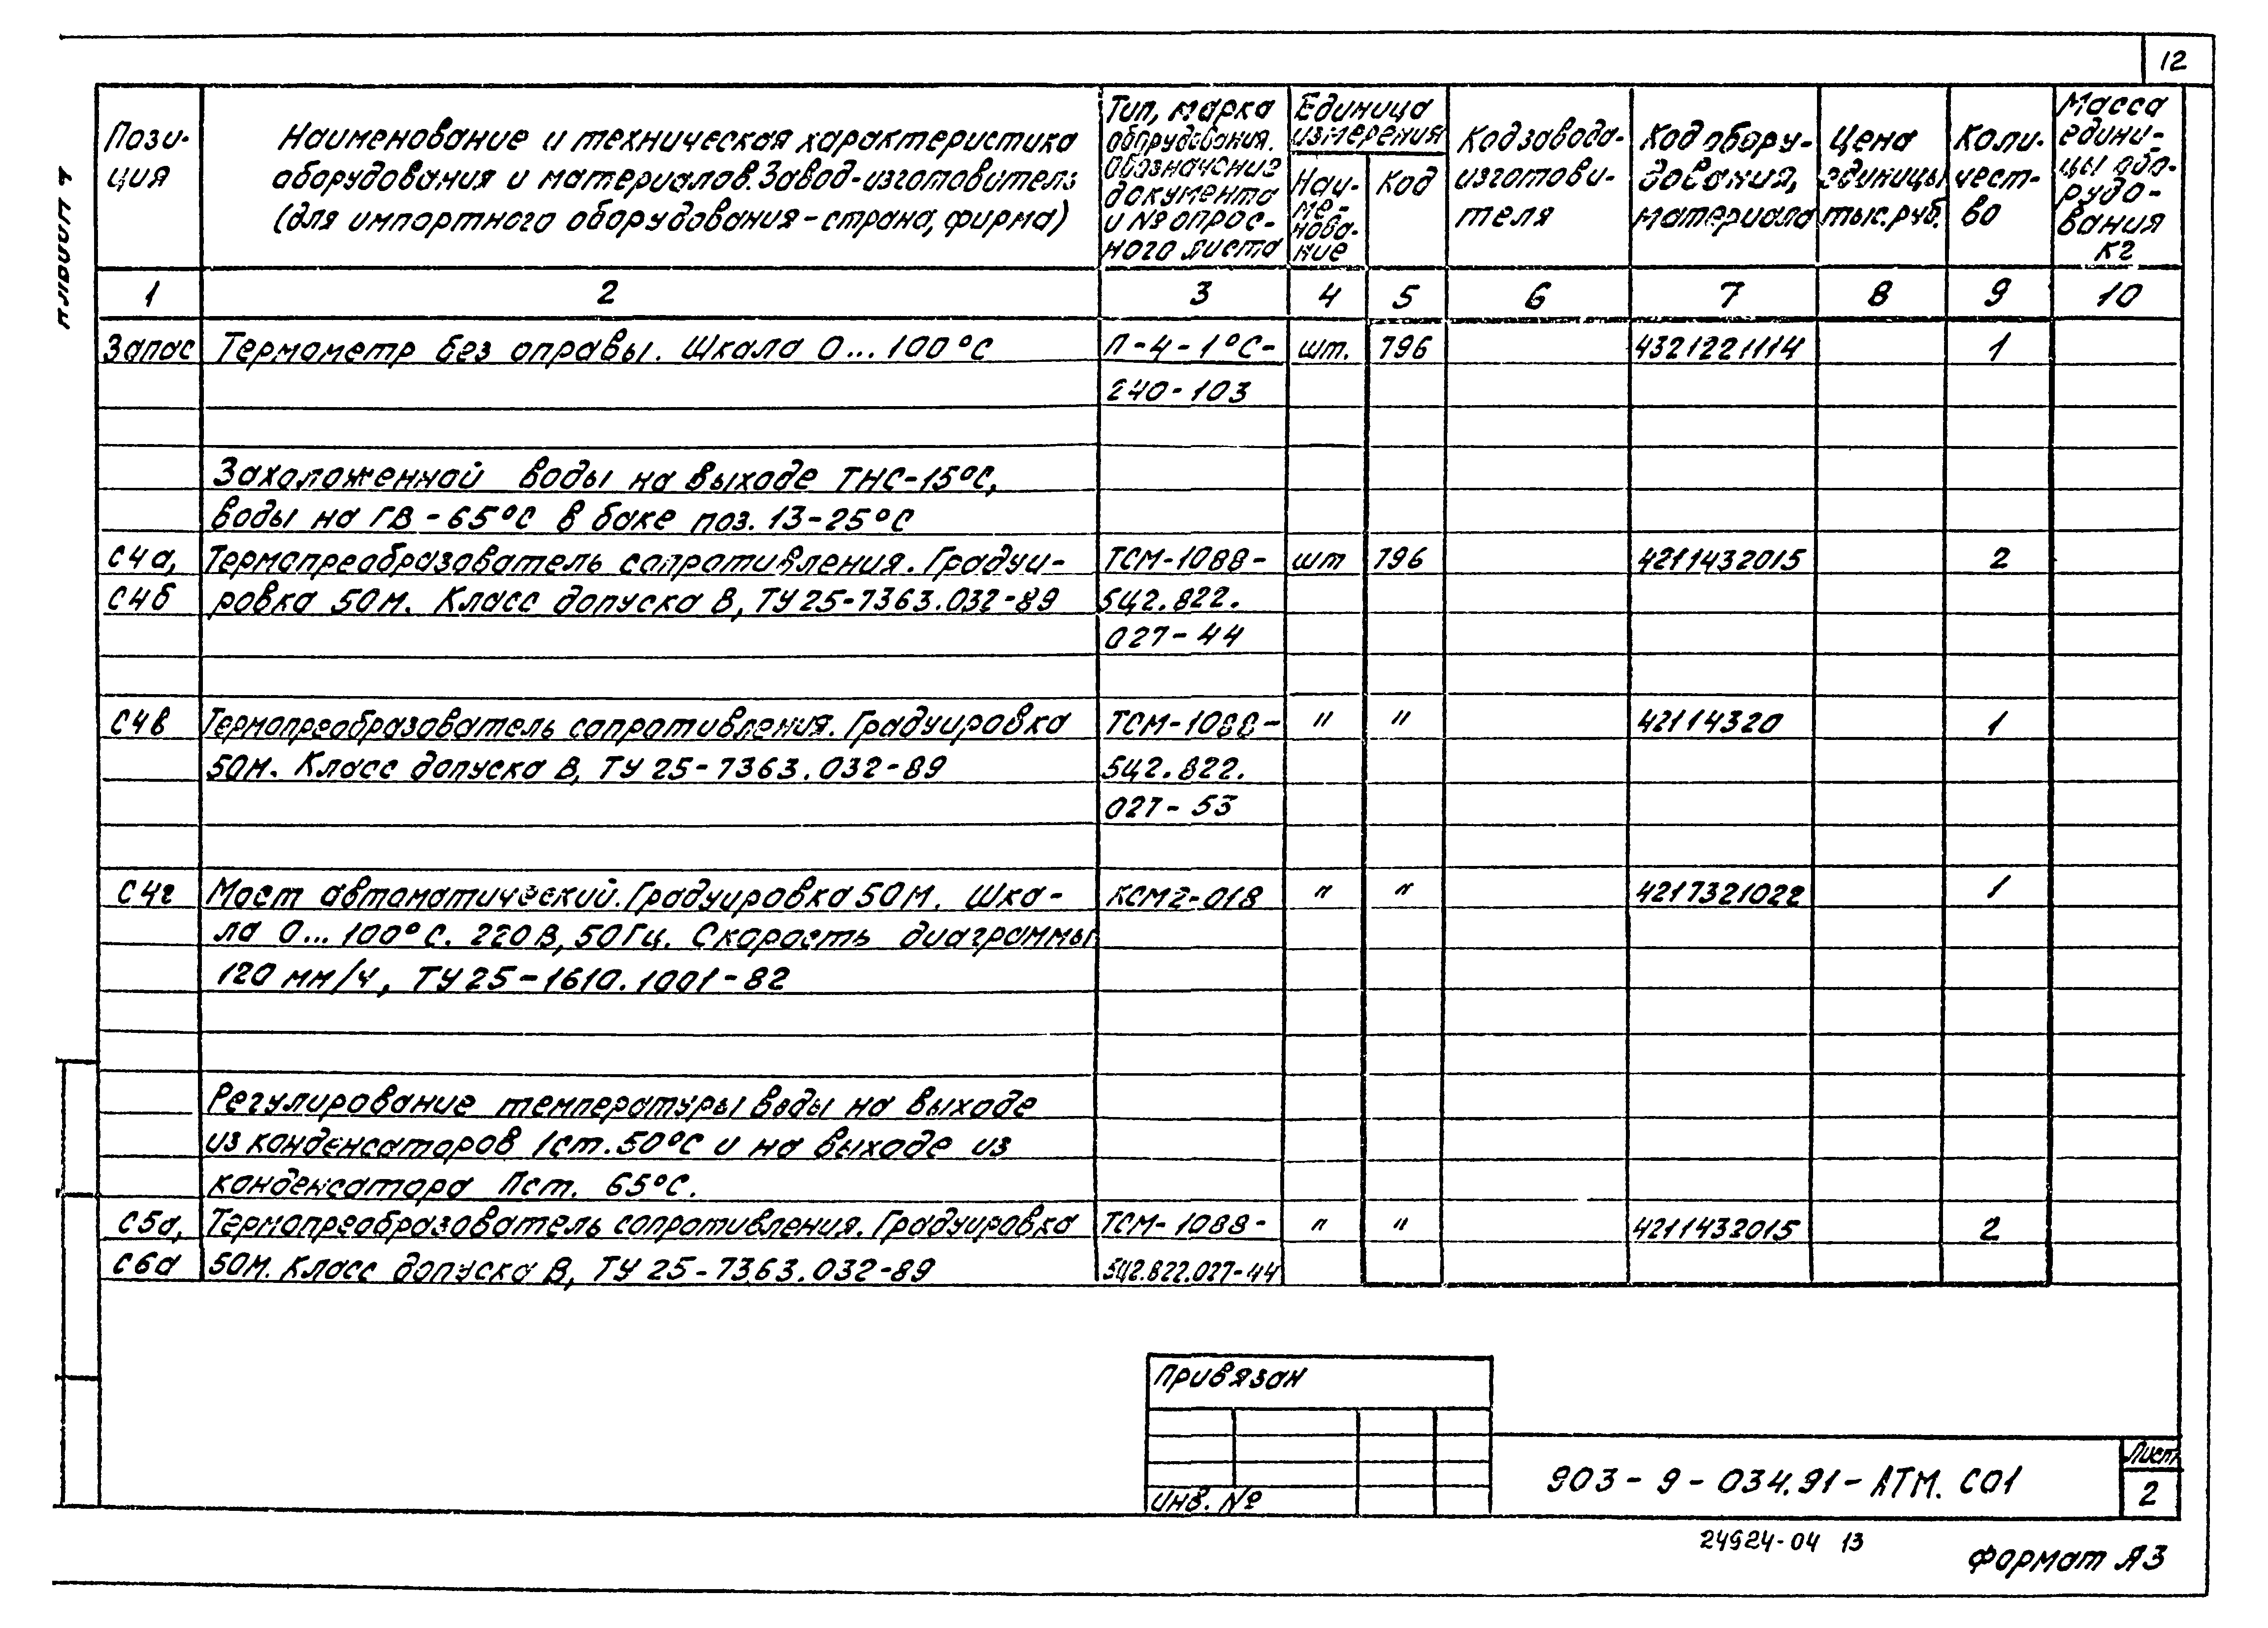 12
Пози-
ция
Наименование и техническая характеристика
оборудования и материалов. Завод-изготовитель
(для импортного оборудования - страна, фирма)
Тип, марка
оборудования.
Обозначение
документа
и № опрос-
ного листа
Единица
измерения
Наи-
ме-
нова-
ние
Код
Код завода-
изготови-
теля
Код обору-
дования,
материала
Цена
единицы
тыс. руб.
Коли-
чест-
во
Масса
едини-
цы обо-
рудо-
вания
кг
1 2 3 4 5 6 7 8 9 10
Запас Термометр без оправы. Шкала 0...100°С П-4-1°С- шт. 796 4321221114 1
240-103
Захоложенной воды на выходе ТНС-15°С,
воды на ГВ-65°С в баке поз. 13-25°С
С4а, Термопреобразователь сопротивления. Градуи- ТСМ-1088- шт 796 4211432015 2
С4б ровка 50М. Класс допуска В, ТУ 25-7363.032-89 5Ц2.822.
027-44
С4в Термопреобразователь сопротивления. Градуировка ТСМ-1088- " " 42114320 1
50М. Класс допуска В, ТУ 25-7363.032-89 5Ц2.822.
027-53
С4г Мост автоматический. Градуировка 50М. Шка- КСМ2-018 " " 4217321022 1
ла 0...100°С. 220В, 50Гц. Скорость диаграммы
120 мм/ч, ТУ 25-1610.1001-82
Регулирование температуры воды на выходе
из конденсаторов Iст. 50°С и на выходе из
конденсатора IIст. 65°С.
С5а, Термопреобразователь сопротивления. Градуировка ТСМ-1088- " " 4211432015 2
С6а 50М. Класс допуска В, ТУ 25-7363.032-89 5Ц2.822.027-44
Привязан
Инв. №
903-9-034.91-АТМ.СО1
Лист
2
24924-04 13
Формат А3